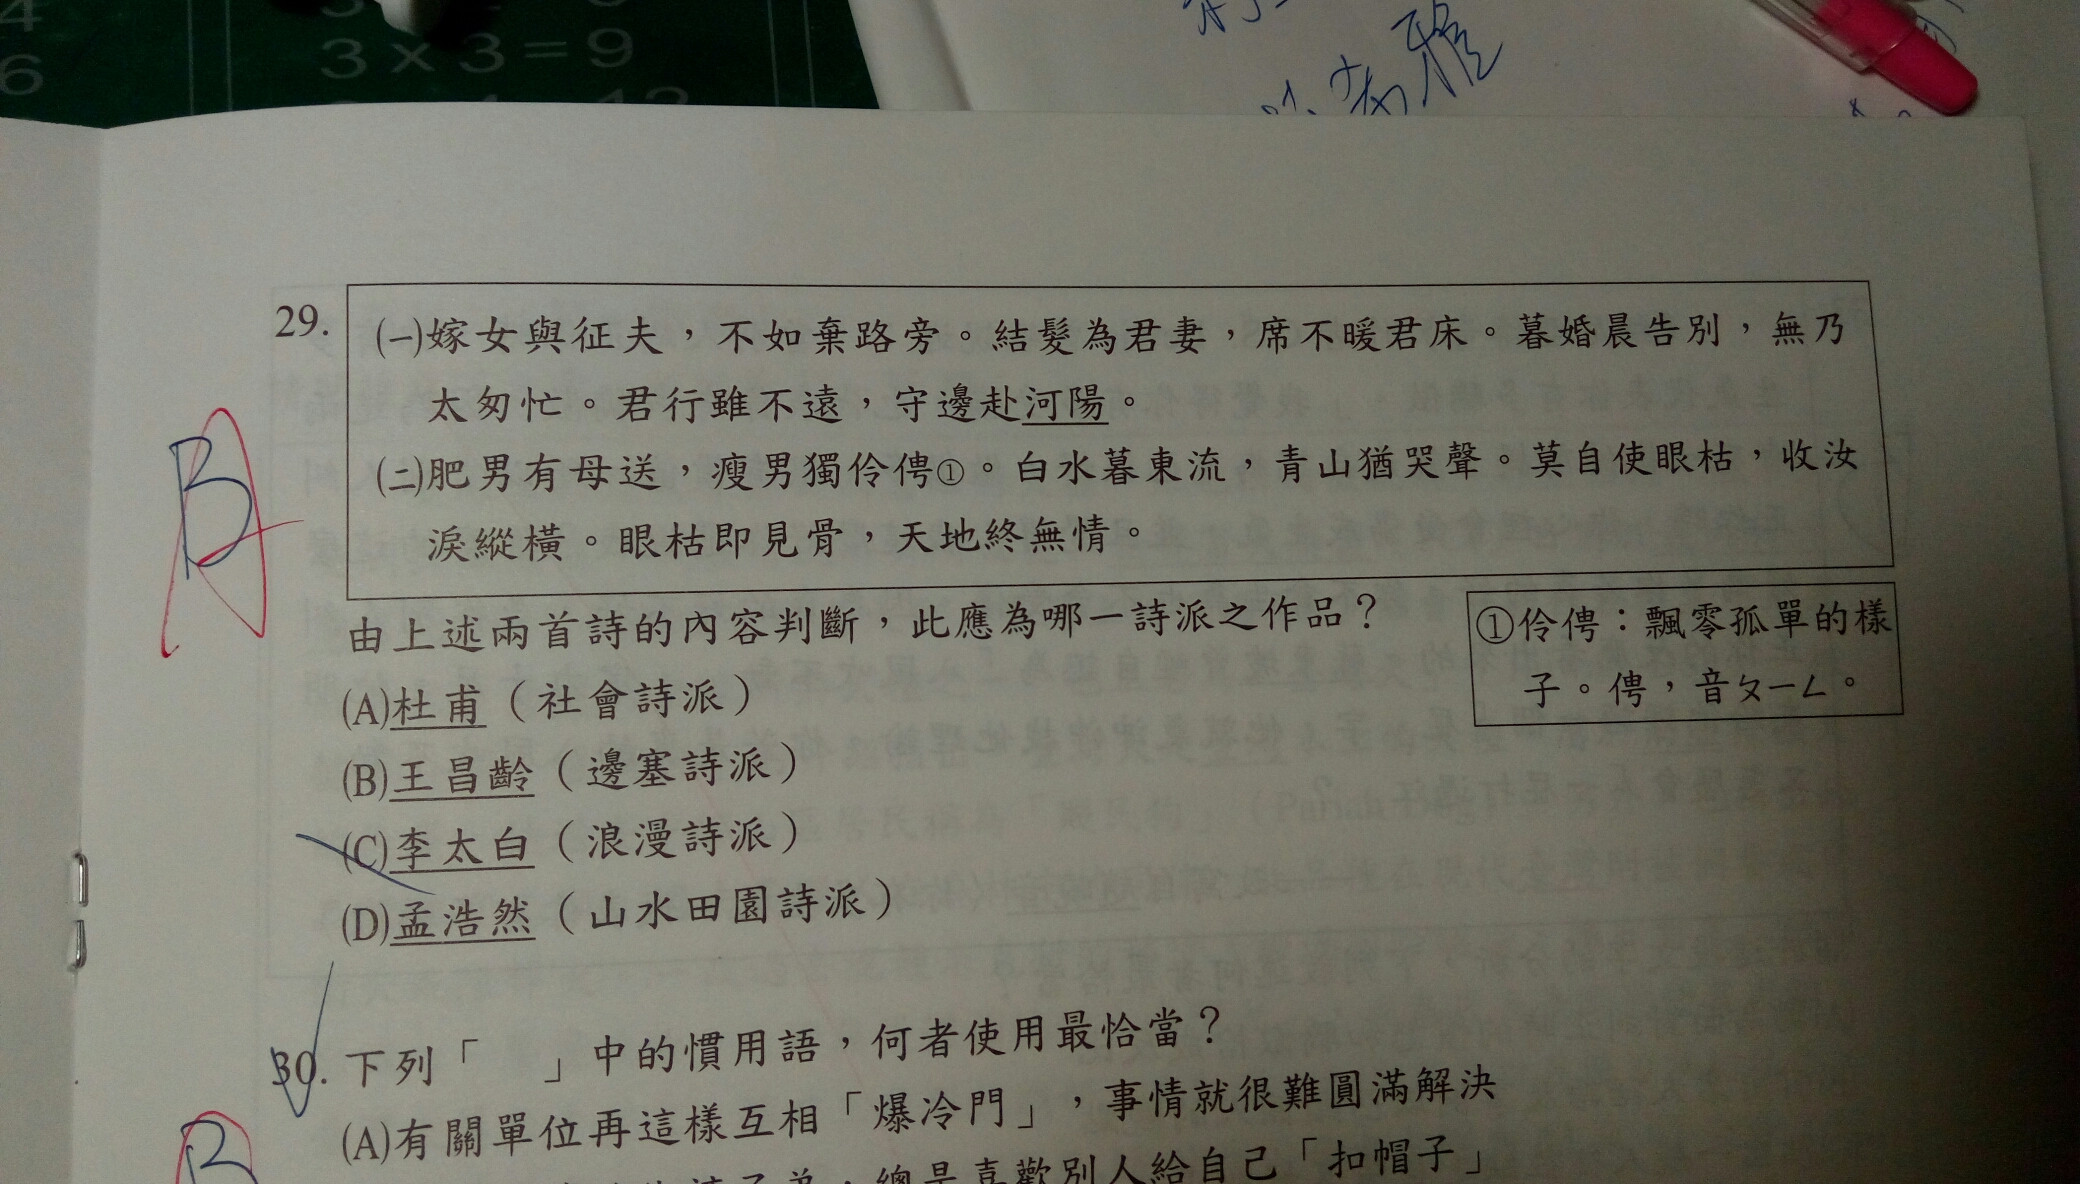 3×3=9
6
29.
㈠嫁女與征夫，不如棄路旁。結髮為君妻，席不暖君床。暮婚晨告別，無乃
太匆忙。君行雖不遠，守邊赴河陽。
㈡肥男有母送，瘦男獨伶俜①。白水暮東流，青山猶哭聲。莫自使眼枯，收汝
淚縱橫。眼枯即見骨，天地終無情。
B
A
由上述兩首詩的內容判斷，此應為哪一詩派之作品？
①伶俜：飄零孤單的樣
子。俜，音ㄆㄧㄥ。
(A)杜甫（社會詩派）
(B)王昌齡（邊塞詩派）
(C)李太白（浪漫詩派）
(D)孟浩然（山水田園詩派）
30. 下列「　」中的慣用語，何者使用最恰當？
(A)有關單位再這樣互相「爆冷門」，事情就很難圓滿解決
B
總是喜歡別人給自己「扣帽子」